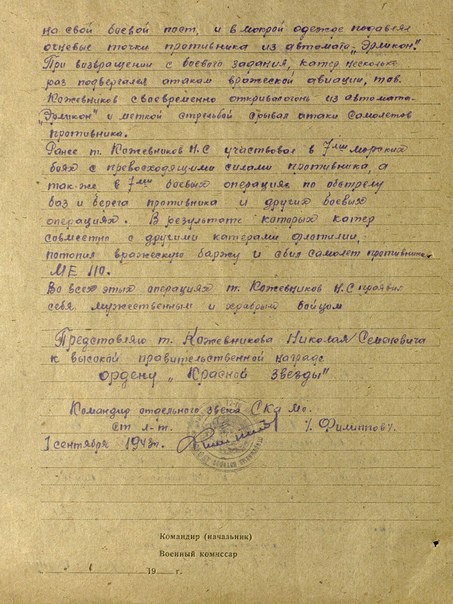 на свой боевой пост, и в мокрой одежде подавлял
огневые точки противника из автомата „Эрликон".
При возвращении с боевого задания, катер несколько
раз подвергался атакам вражеской авиации, тов.
Кожевников своевременно открывал огонь из автомата-
„Эрликон" и меткой стрельбой срывал атаки самолетов
противника.
Ранее т. Кожевников Н.С участвовал в 7ми морских
боях с превосходящими силами противника, а
так-же в 7ми боевых операциях по обстрелу
баз и берега противника и других боевых
операциях. В результате которых катер
совместно с другими катерами флотилии,
потопил вражескую баржу и сбил самолет противника
МЕ 110.
Во всех этих операциях т. Кожевников Н.С проявил
себя мужественным и храбрым бойцом.
Представляю т. Кожевникова Николая Семеновича
к высокой правительственной награде
ордену „Красной Звезды"
Командир отдельного звена СКа мо.
ст л-т. /. Филиппов/.
1 сентября 1943г.
Командир (начальник)
Военный комиссар
19 г.